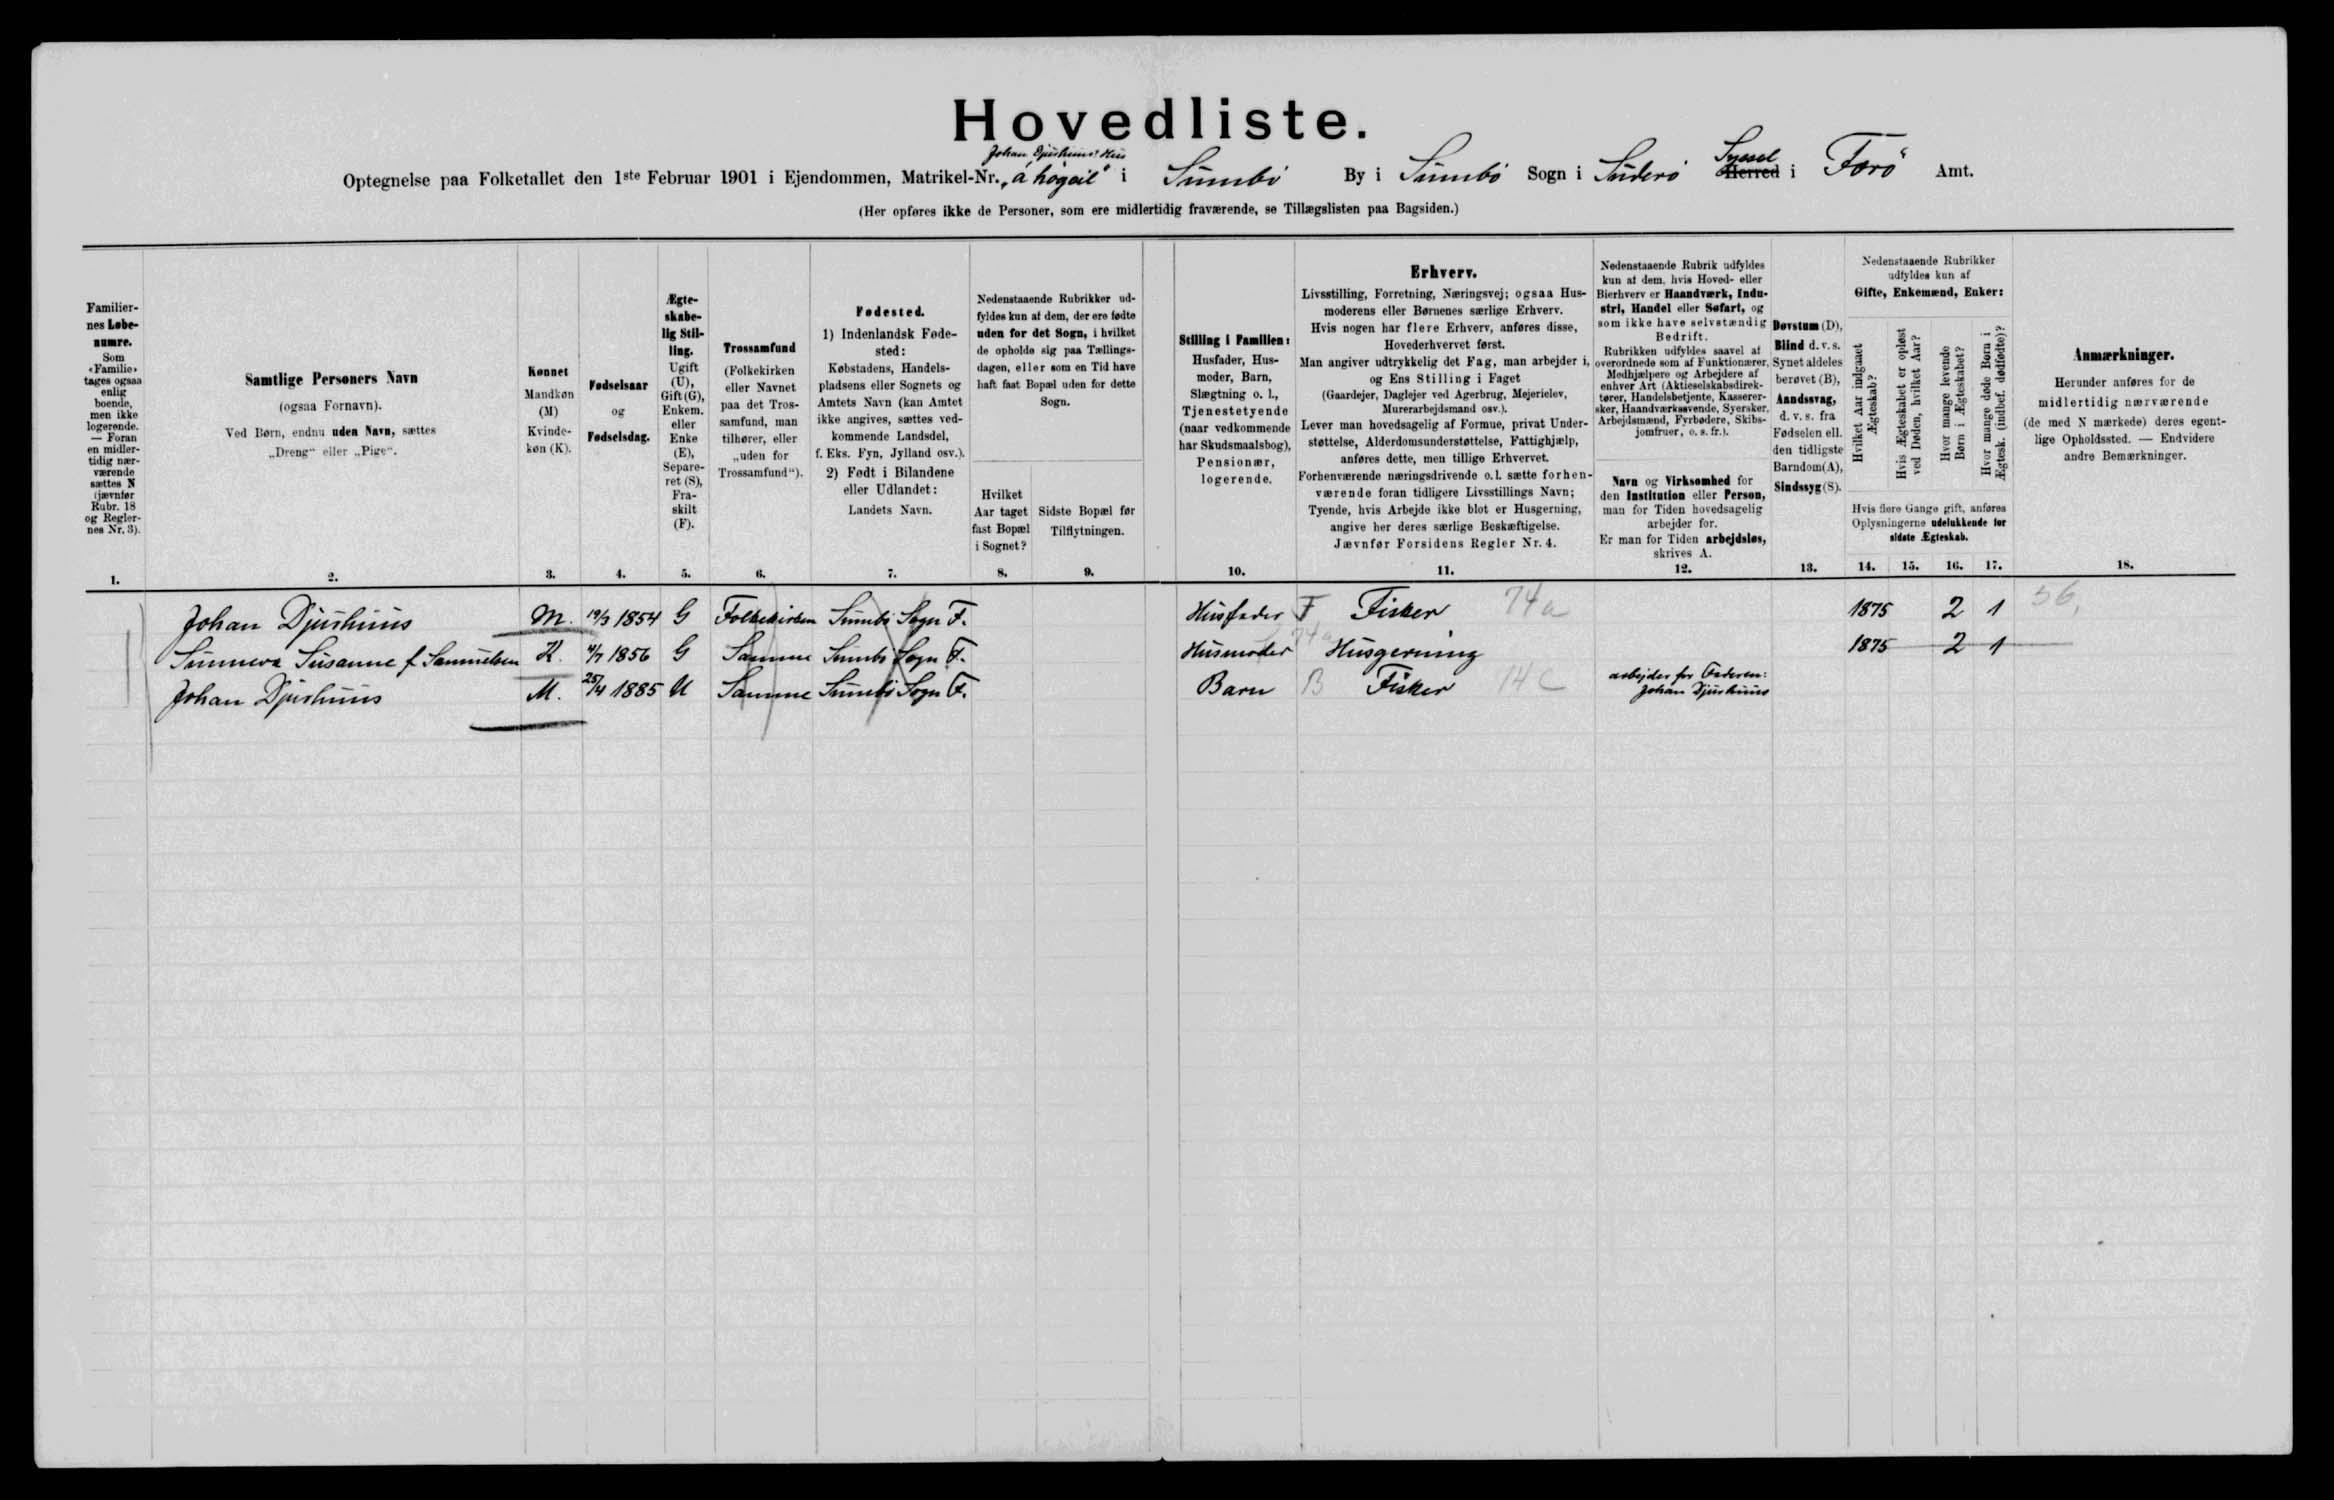 Hovedliste.
Johan Djurhuus' Hus
Optegnelse paa Folketallet den 1ste Februar 1901 i Ejendommen, Matrikel-Nr. „á hogoil" i Sumbö By i Sumbö Sogn i Suderö Syssel Herred i Færö Amt.
(Her opføres ikke de Personer, som ere midlertidig fraværende, se Tillægslisten paa Bagsiden.)
Familier-
nes Løbe-
numre.
Som
«Familie»
tages ogsaa
enlig
boende,
men ikke
logerende.
— Foran
en midler-
tidig nær-
værende
sættes N
(jævnfør
Rubr. 18
og Regler-
nes Nr. 3).
1.
Samtlige Personers Navn
(ogsaa Fornavn).
Ved Børn, endnu uden Navn, sættes
„Dreng" eller „Pige".
2.
Kønnet
Mandkøn
(M)
Kvinde-
køn (K).
3.
Fødselsaar
og
Fødselsdag.
4.
Ægte-
skabe-
lig Stil-
ling.
Ugift
(U),
Gift (G),
Enkem.
eller
Enke
(E),
Separe-
ret (S),
Fra-
skilt
(F).
5.
Trossamfund
(Folkekirken
eller Navnet
paa det Tros-
samfund, man
tilhører, eller
„uden for
Trossamfund").
6.
Fødested.
1) Indenlandsk Føde-
sted:
Købstadens, Handels-
pladsens eller Sognets og
Amtets Navn (kan Amtet
ikke angives, sættes ved-
kommende Landsdel,
f. Eks. Fyn, Jylland osv.).
2) Født i Bilandene
eller Udlandet:
Landets Navn.
7.
Nedenstaaende Rubrikker ud-
fyldes kun af dem, der ere fødte
uden for det Sogn, i hvilket
de opholde sig paa Tællings-
dagen, eller som en Tid have
haft fast Bopæl uden for dette
Sogn.
Hvilket
Aar taget
fast Bopæl
i Sognet?
8.
Sidste Bopæl før
Tilflytningen.
9.
Stilling i Familien:
Husfader, Hus-
moder, Barn,
Slægtning o. l.,
Tjenestetyende
(naar vedkommende
har Skudsmaalsbog),
Pensionær,
logerende.
10.
Erhverv.
Livsstilling, Forretning, Næringsvej; ogsaa Hus-
moderens eller Børnenes særlige Erhverv.
Hvis nogen har flere Erhverv, anføres disse,
Hovederhvervet først.
Man angiver udtrykkelig det Fag, man arbejder i,
og Ens Stilling i Faget
(Gaardejer, Daglejer ved Agerbrug, Mejerielev,
Murerarbejdsmand osv.).
Lever man hovedsagelig af Formue, privat Under-
støttelse, Alderdomsunderstøttelse, Fattighjælp,
anføres dette, men tillige Erhvervet.
Forhenværende næringsdrivende o. l. sætte forhen-
værende foran tidligere Livsstillings Navn;
Tyende, hvis Arbejde ikke blot er Husgerning,
angive her deres særlige Beskæftigelse.
Jævnfør Forsidens Regler Nr. 4.
11.
Nedenstaaende Rubrik udfyldes
kun af dem, hvis Hoved- eller
Bierhverv er Haandværk, Indu-
stri, Handel eller Søfart, og
som ikke have selvstændig
Bedrift.
Rubrikken udfyldes saavel af
overordnede som af Funktionærer,
Medhjælpere og Arbejdere af
enhver Art (Aktieselskabsdirek-
tører, Handelsbetjente, Kasserer-
sker, Haandværkssvende, Syersker,
Arbejdsmænd, Fyrbødere, Skibs-
jomfruer, o. s. fr.).
Navn og Virksomhed for
den Institution eller Person,
man for Tiden hovedsagelig
arbejder for.
Er man for Tiden arbejdsløs,
skrives A.
12.
Døvstum (D),
Blind d. v. s.
Synet aldeles
berøvet (B),
Aandssvag,
d. v. s. fra
Fødselen ell.
den tidligste
Barndom (A),
Sindssyg (S).
13.
Nedenstaaende Rubrikker
udfyldes kun af
Gifte, Enkemænd, Enker:
Hvilket Aar indgaaet
Ægteskab?
Hvis Ægteskabet er opløst
ved Døden, hvilket Aar?
Hvor mange levende
Børn i Ægteskabet?
Hvor mange døde Børn i
Ægtesk. (indbef. dødfødte)?
Hvis flere Gange gift, anføres
Oplysningerne udelukkende for
sidste Ægteskab.
14. 15. 16. 17.
Anmærkninger.
Herunder anføres for de
midlertidig nærværende
(de med N mærkede) deres egent-
lige Opholdssted. — Endvidere
andre Bemærkninger.
18.
Johan Djurhuus M. 19/3 1854 G Folkekirken Sumbö Sogn F. Husfader F Fisker 74a 1875 2 1 56,
Sunneva Susanne f. Samuelsen K. 4/7 1856 G Samme Sumbö Sogn F. Husmoder 74a Husgerning 1875 2 1
Johan Djurhuus M. 25/4 1885 U Samme Sumbö Sogn F. Barn B Fisker 14C arbejder for Faderen:
Johan Djurhuus